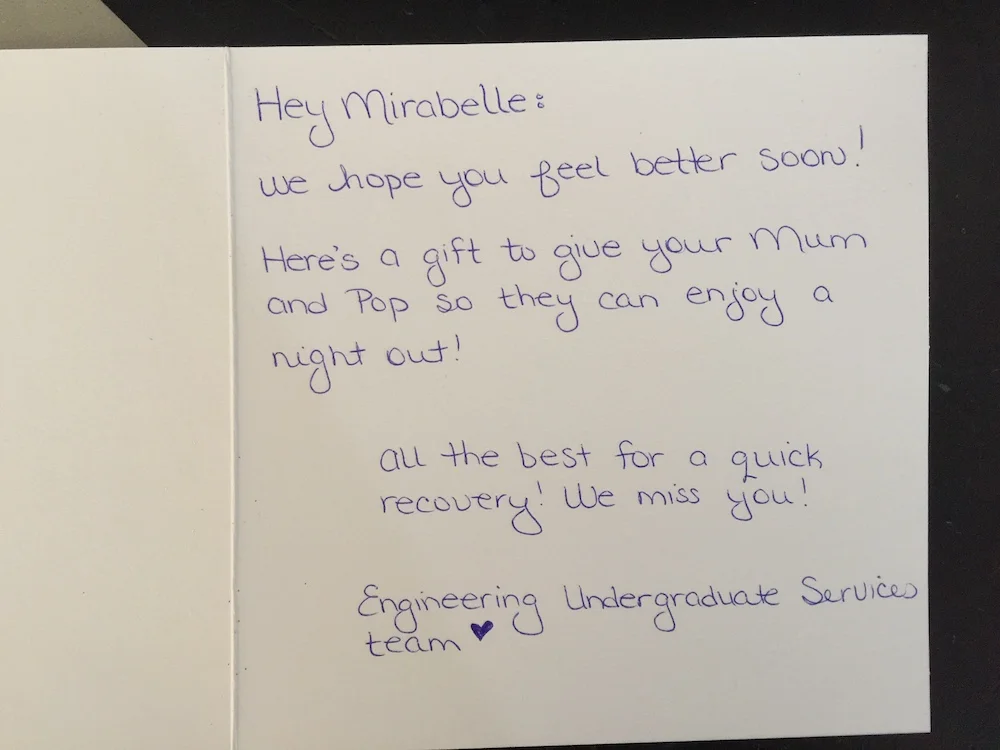 Hey Mirabelle:
we hope you feel better soon!
Here's a gift to give your Mum
and Pop so they can enjoy a
night out!
all the best for a quick
recovery! We miss you!
Engineering Undergraduate Services
team ♥